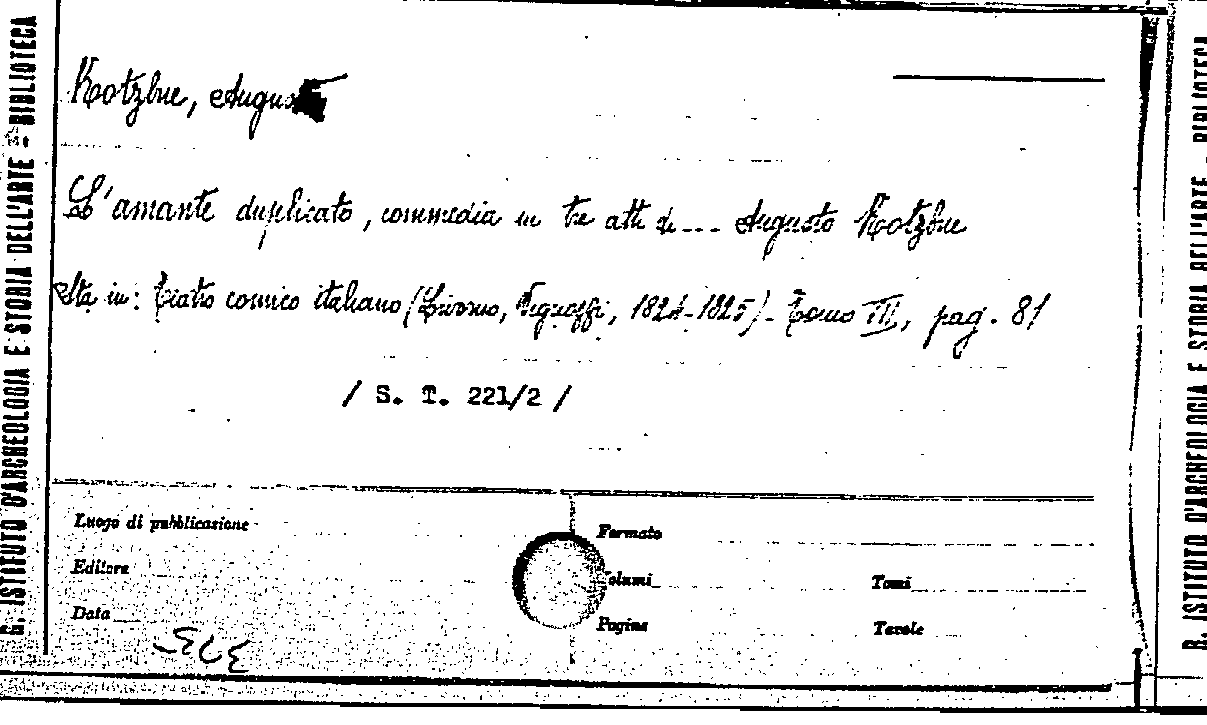 R. ISTITUTO D'ARCHEOLOGIA E STORIA DELL'ARTE - BIBLIOTECA
Kotzbue, August
L'amante duplicato, commedia in tre atti di... Augusto Kotzbue
Sta in: Teatro comico italiano (Livorno, Vignozzi, 1824-1825). Tomo III, pag. 81
/ S. T. 221/2 /
Luogo di pubblicazione
Formato
Editore
Volumi
Tomi
Data
Pagine
Tavole
R. ISTITUTO D'ARCHEOLOGIA E STORIA DELL'ARTE - BIBLIOTECA